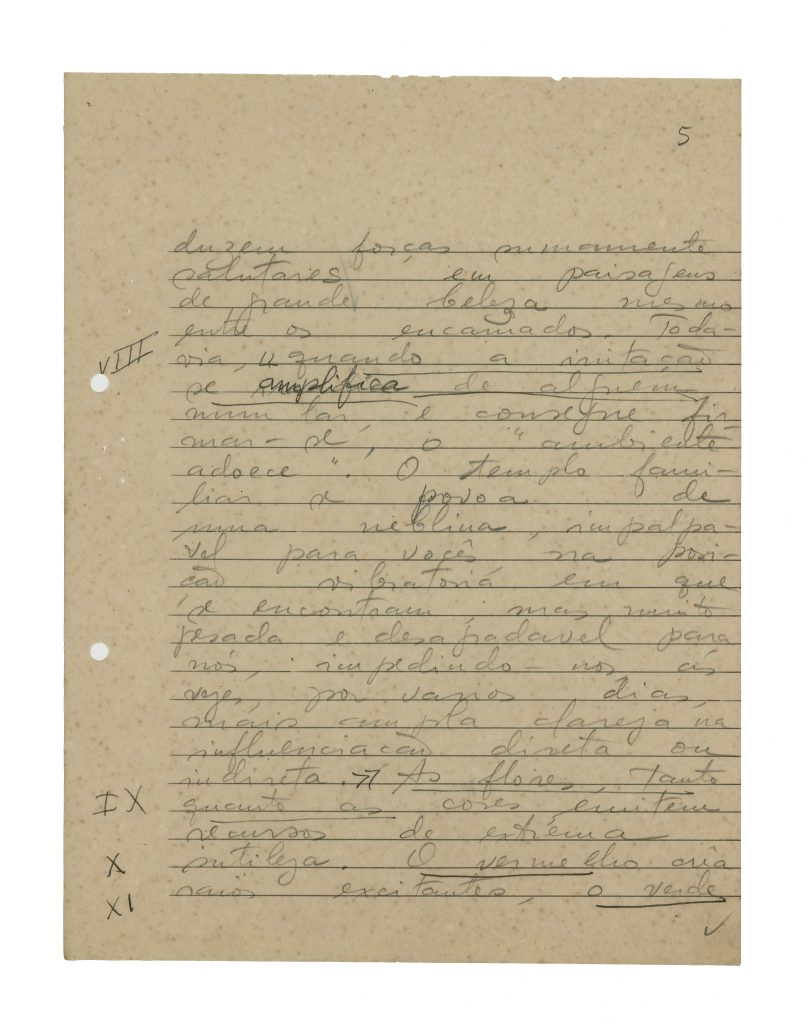 5
duzem forças sumamente
salutares em paisagens
de grande beleza mesmo
entre os encarnados. Toda-
VIII via, quando a irritação
se amplifica de alguém
num lar, e consegue fir-
mar-se, o "ambiente
adoece". O templo fami-
liar se povoa de
uma neblina, impalpa-
vel para vocês na posi-
cão vibratoriá em que
se encontram, mas muito
pesada e desagradavel para
nós, impedindo-nos, ás
vezes, por varios dias,
mais ampla clareza na
influenciacão direta ou
indireta. As flores, tanto
IX quanto as cores, emitem
recursos de extrema
X sutileza. O vermelho cria
XI raios excitantes, o verde